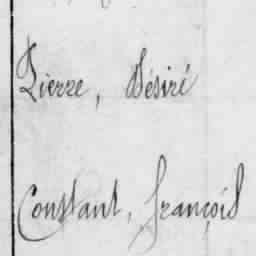 Pierre, Désiré
Constant, François